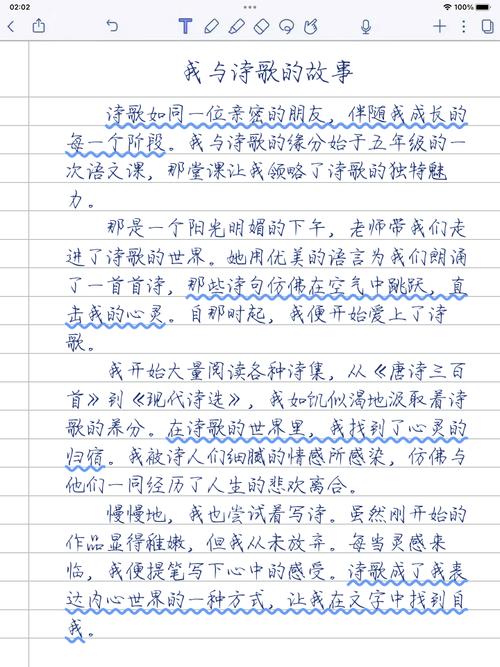 02:02
100%
T
我与诗歌的故事
诗歌如同一位亲密的朋友，伴随我成长的
每一个阶段。我与诗歌的缘分始于五年级的一
次语文课，那堂课让我领略了诗歌的独特魅
力。
那是一个阳光明媚的下午，老师带我们走
进了诗歌的世界。她用优美的语言为我们朗诵
了一首首诗，那些诗句仿佛在空气中跳跃，直
击我的心灵。自那时起，我便开始爱上了诗
歌。
我开始大量阅读各种诗集，从《唐诗三百
首》到《现代诗选》，我如饥似渴地汲取着诗
歌的养分。在诗歌的世界里，我找到了心灵的
归宿。我被诗人们细腻的情感所感染，仿佛与
他们一同经历了人生的悲欢离合。
慢慢地，我也尝试着写诗。虽然刚开始的
作品显得稚嫩，但我从未放弃。每当灵感来
临，我便提笔写下心中的感受。诗歌成了我表
达内心世界的一种方式，让我在文字中找到自
我。